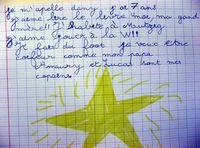 je m'appelle dany j'ai 7 ans
j'aime lire le livre moi, ma grand
mère!! J'habite à
j'aime jouer à la WII
Je fais du foot je veux être
coiffeur comme mon papa
Amaury et Lucas sont mes
copains.